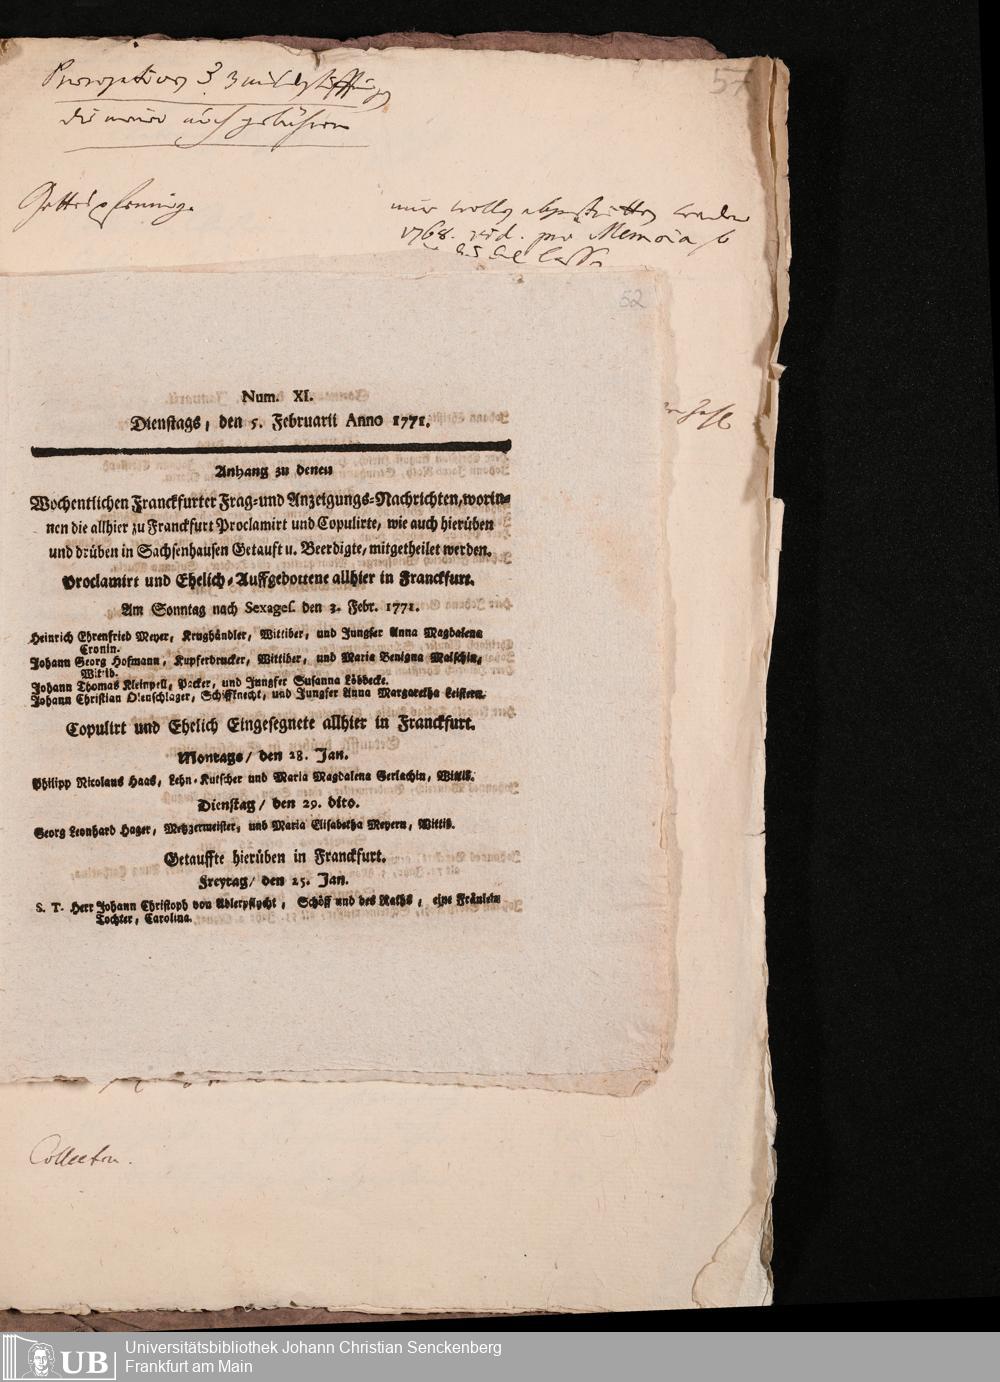 57
1768. vid. pro Memoria
52
Num. XI.
Dienstags, den 5. Februarii Anno 1771.
Anhang zu denen
Wochentlichen Franckfurter Frag-und Anzeigungs-Nachrichten, worin-
nen die allhier zu Franckfurt Proclamirt und Copulirte, wie auch hierüben
und drüben in Sachsenhausen Getauft u. Beerdigte, mitgetheilet werden.
Proclamirt und Ehelich-Auffgebottene allhier in Franckfurt.
Am Sonntag nach Sexages. den 3. Febr. 1771.
Heinrich Ehrenfried Meyer, Krughändler, Wittiber, und Jungfer Anna Magdalena
Cronin.
Johann Georg Hofmann, Kupferdrucker, Wittiber, und Maria Benigna Malschin,
Wittib.
Johann Thomas Kleinpell, Packer, und Jungfer Susanna Löbbecke.
Johann Christian Olenschlager, Schiffknecht, und Jungfer Anna Margaretha Leistern.
Copulirt und Ehelich Eingesegnete allhier in Franckfurt.
Montags / den 28. Jan.
Philipp Nicolaus Haas, Lehn-Kutscher und Maria Magdalena Gerlachin, Wittib.
Dienstag / den 29. dito.
Georg Leonhard Hager, Metzgermeister, und Maria Elisabetha Meyern, Wittib.
Getauffte hierüben in Franckfurt.
Freytag / den 25. Jan.
S. T. Herr Johann Christoph von Adlerflycht, Schöff und des Raths, eine Fräulein
Tochter, Carolina.
UB
Universitätsbibliothek Johann Christian Senckenberg
Frankfurt am Main